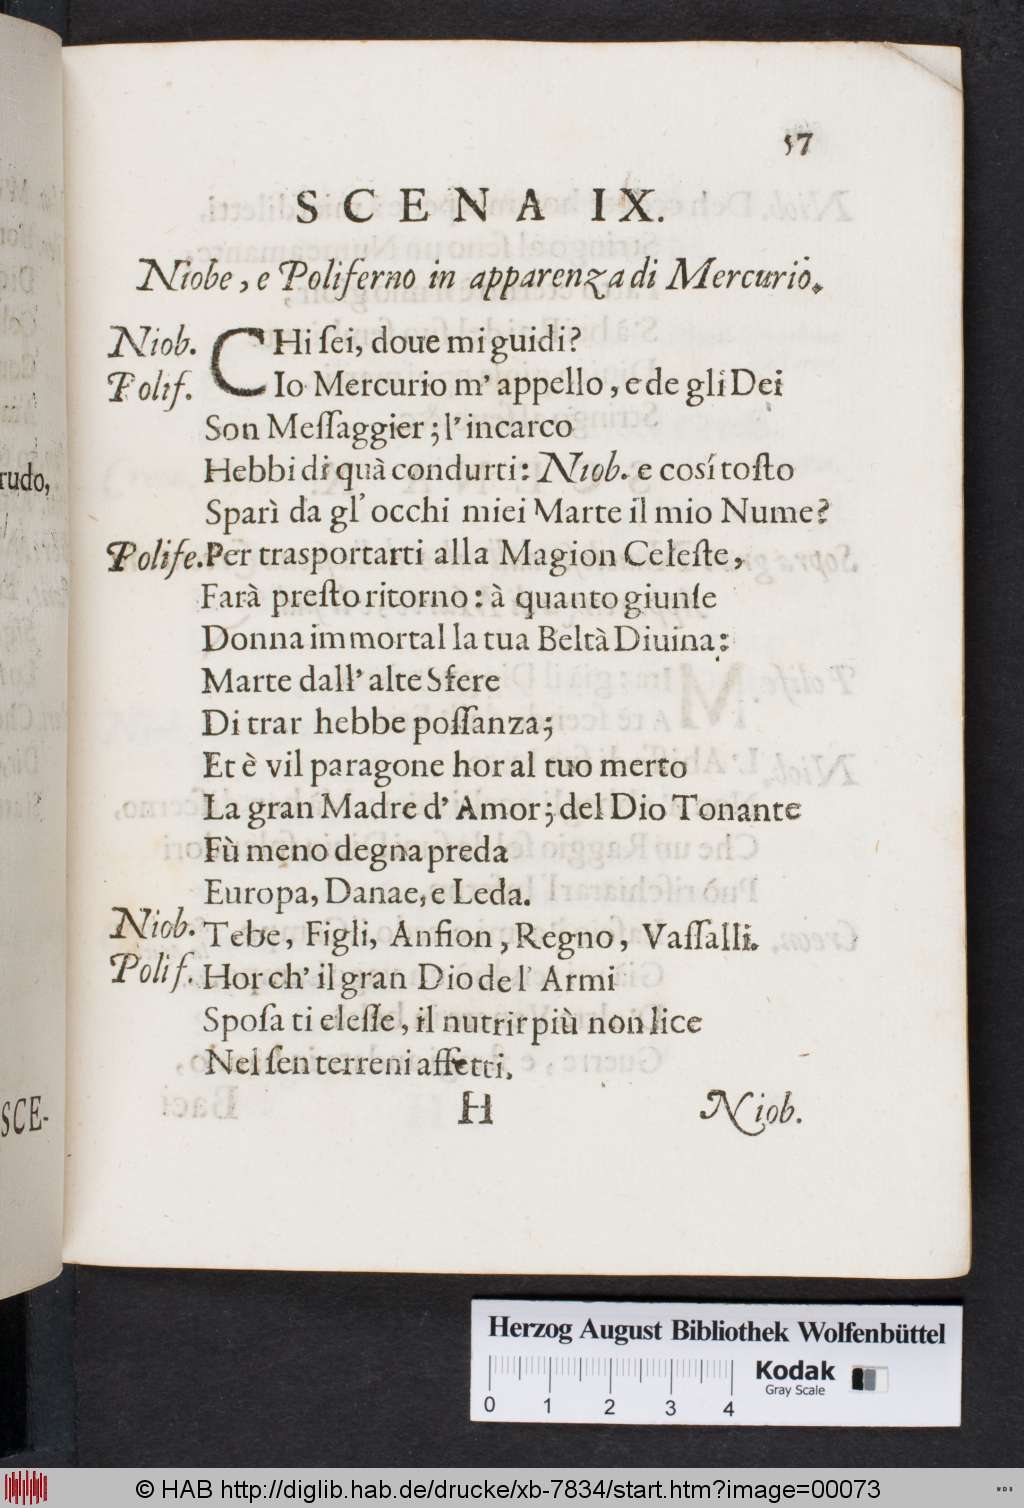 57
SCENA IX.
Niobe, e Poliferno in apparenza di Mercurio.
Niob. CHi ſei, doue mi guidi?
Polif. Io Mercurio m' appello, e de gli Dei
Son Meſſaggier; l' incarco
Hebbi di quà condurti: Niob. e cosí toſto
Sparì da gl' occhi miei Marte il mio Nume?
Polife. Per trasportarti alla Magion Celeſte,
Farà preſto ritorno: à quanto giunſe
Donna immortal la tua Beltà Diuina:
Marte dall' alte Sfere
Di trar hebbe poſſanza;
Et è vil paragone hor al tuo merto
La gran Madre d' Amor; del Dio Tonante
Fù meno degna preda
Europa, Danae, e Leda.
Niob. Tebe, Figli, Anfion, Regno, Vaſſalli.
Polif. Hor ch' il gran Dio de l' Armi
Spoſa ti eleſſe, il nutrir più non lice
Nel ſen terreni affetti.
H Niob.
rudo,
SCE-
Herzog August Bibliothek Wolfenbüttel
0 1 2 3 4
Kodak
Gray Scale
© HAB http://diglib.hab.de/drucke/xb-7834/start.htm?image=00073